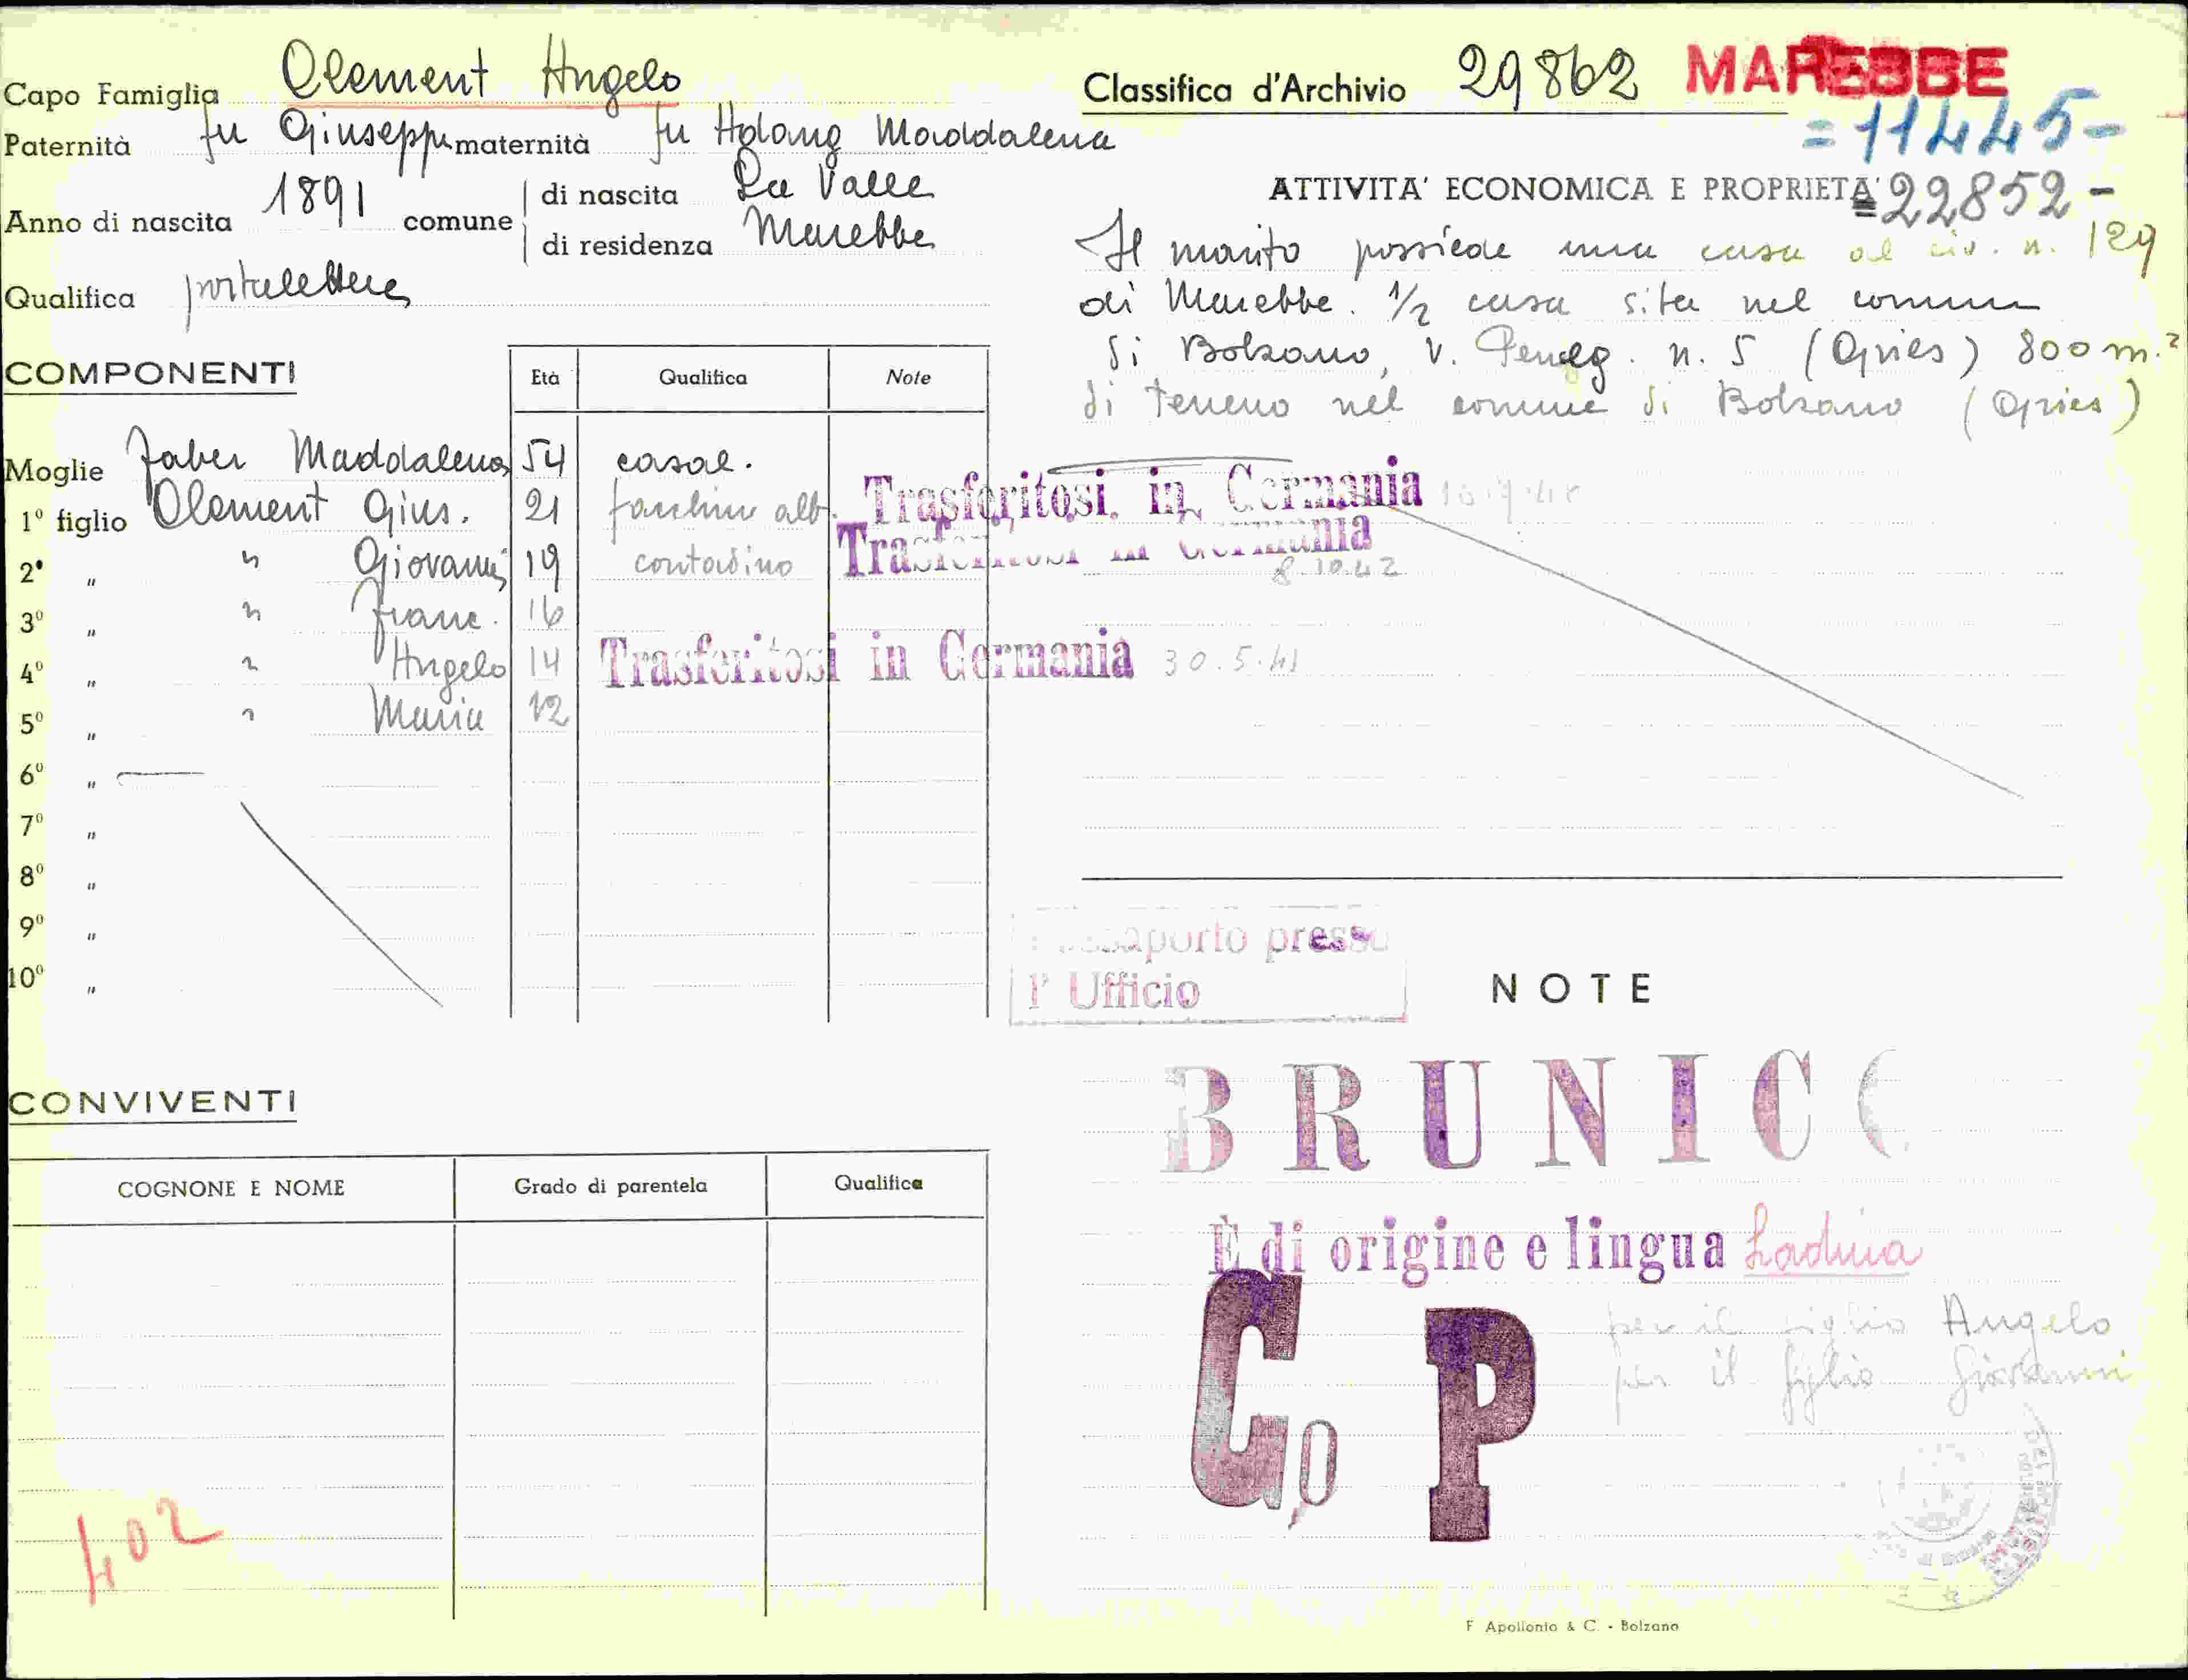 Capo Famiglia Clement Angelo
Paternità fu Giuseppe maternità fu Adang Maddalena
Anno di nascita 1891 comune di nascita La Valle
di residenza Marebbe
Qualifica portalettere
COMPONENTI
Età Qualifica Note
Moglie Faber Maddalena 54 casal.
1º figlio Clement Gius. 21 facchino alb. Trasferitosi in Germania
2º " " Giovanni 19 contadino Trasferitosi in Germania
8.10.42
3º " " Franc. 16
4º " " Angelo 14 Trasferitosi in Germania 30.5.41
5º " " Maria 12
6º "
7º "
8º "
9º "
10º "
CONVIVENTI
COGNONE E NOME Grado di parentela Qualifica
402
Classifica d'Archivio 29862 MAREBBE
= 11445 -
ATTIVITA' ECONOMICA E PROPRIETA'
= 22852 -
Il marito possiede una casa al civ. n. 129
di Marebbe. 1/2 casa sita nel comune
di Bolzano, v. n. 5 (Gries) 800 m.²
di terreno nel comune di Bolzano (Gries)
Passaporto presso
l'Ufficio
NOTE
BRUNICO
È di origine e lingua Ladina
Co P
per il figlio Angelo
per il figlio Giovanni
F. Apollonio & C. - Bolzano